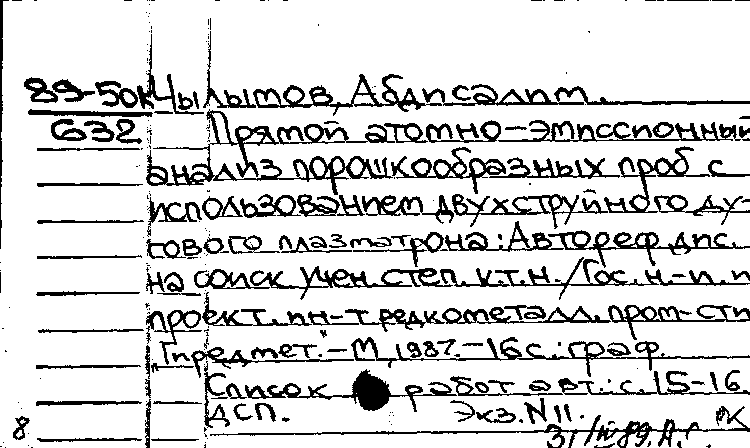 89-50к Чылымов, Абдисалим.
632 Прямой атомно-эмиссионный
анализ порошкообразных проб с
использованием двухструйного ду-
гового плазматрона: Автореф дис.
на соиск учен. степ. к.т.н. / Гос. н.-и. и
проект. ин-т редкометалл. пром-сти
"Гиредмет." - М, 1987. - 16 с.: граф.
Список работ авт.: с. 15-16
ДСП. Экз. N 11. ОК
8 31/III 89 А.Г.